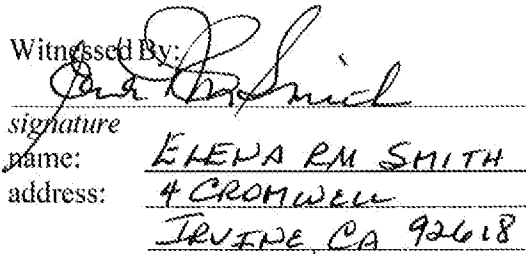 Witnessed By:
signature
name: ELENA RM SMITH
address: 4 CROMWELL
IRVINE, CA 92618